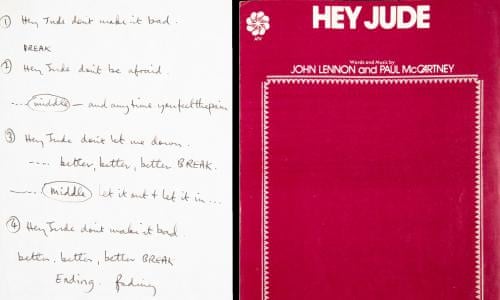 ① Hey Jude don't make it bad.
BREAK
② Hey Jude don't be afraid.
.... middle — and any time you feel the pain
③ Hey Jude don't let me down.
.... better, better, better BREAK.
.... middle let it out & let it in ...
④ Hey Jude don't make it bad.
better, better, better BREAK
Ending. fading
HEY JUDE
Words and Music by
JOHN LENNON and PAUL McCARTNEY